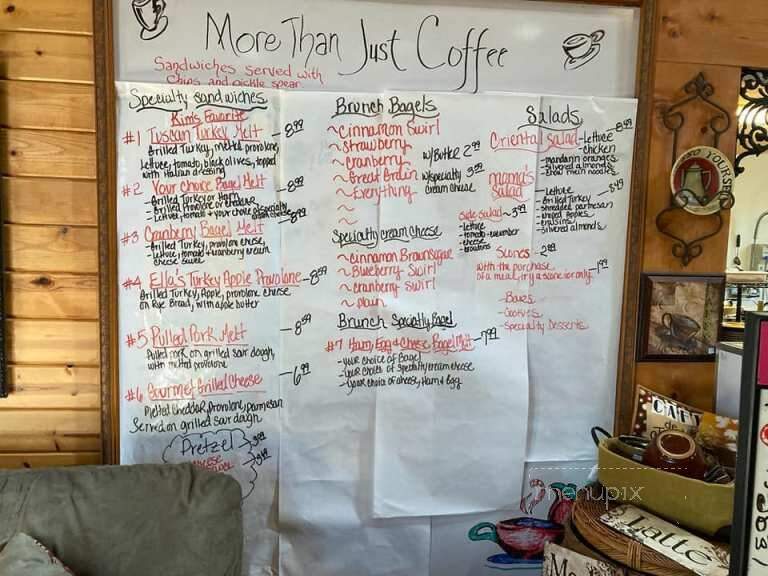 More Than Just Coffee
Sandwiches served with
Chips and pickle spear
Specialty sandwiches
Kim's Favorite
#1 Tuscan Turkey Melt - 8.99
Grilled Turkey, melted provolone,
Lettuce, tomato, black olives, topped
with Italian dressing
#2 Your Choice Bagel Melt - 8.99
- Grilled Turkey or Ham
- Grilled Provolone or cheddar
- Lettuce, tomato + your choice of specialty
cream cheese
#3 Cranberry Bagel Melt
- Grilled Turkey, provolone cheese,
- lettuce, tomato + cranberry cream
cheese swirl
#4 Ella's Turkey Apple Provolone - 8.59
Grilled Turkey, Apple, provolone cheese
on Rye Bread, with apple butter
#5 Pulled Pork Melt - 8.59
Pulled pork on grilled sour dough,
with melted provolone
#6 Gourmet Grilled Cheese - 6.99
Melted Cheddar, Provolone, parmesan
Served on grilled sour dough
Pretzel
cheese
Brunch Bagels
~ Cinnamon Swirl
~ Strawberry
~ Cranberry
~ Great Grain
~ Everything
w/Butter 2.99
w/specialty 3.99
cream cheese
Specialty cream cheese
~ Cinnamon Brown Sugar
~ Blueberry Swirl
~ Cranberry Swirl
~ plain
Brunch Specialty Bagel
#7 Ham, Egg & Cheese Bagel Melt - 7.99
- your choice of Bagel
- your choice of specialty cream cheese
- your choice of cheese, Ham & Egg
Salads
Oriental Salad - lettuce 8.49
- chicken
- mandarin oranges
- slivered almonds
- chow mein noodles
Mama's Salad
- lettuce 8.49
- Grilled Turkey
- shredded parmesan
- chopped apples
- craisins
- slivered almonds
Side Salad - 3.99
- lettuce
- tomato - cucumber
- cheese
- croutons
Scones - 2.99
with the purchase
of a meal, try a scone for only - 1.99
- Bars
- Cookies
- Specialty Desserts
YOURSELF
CAFÉ
de
Latte
menupix